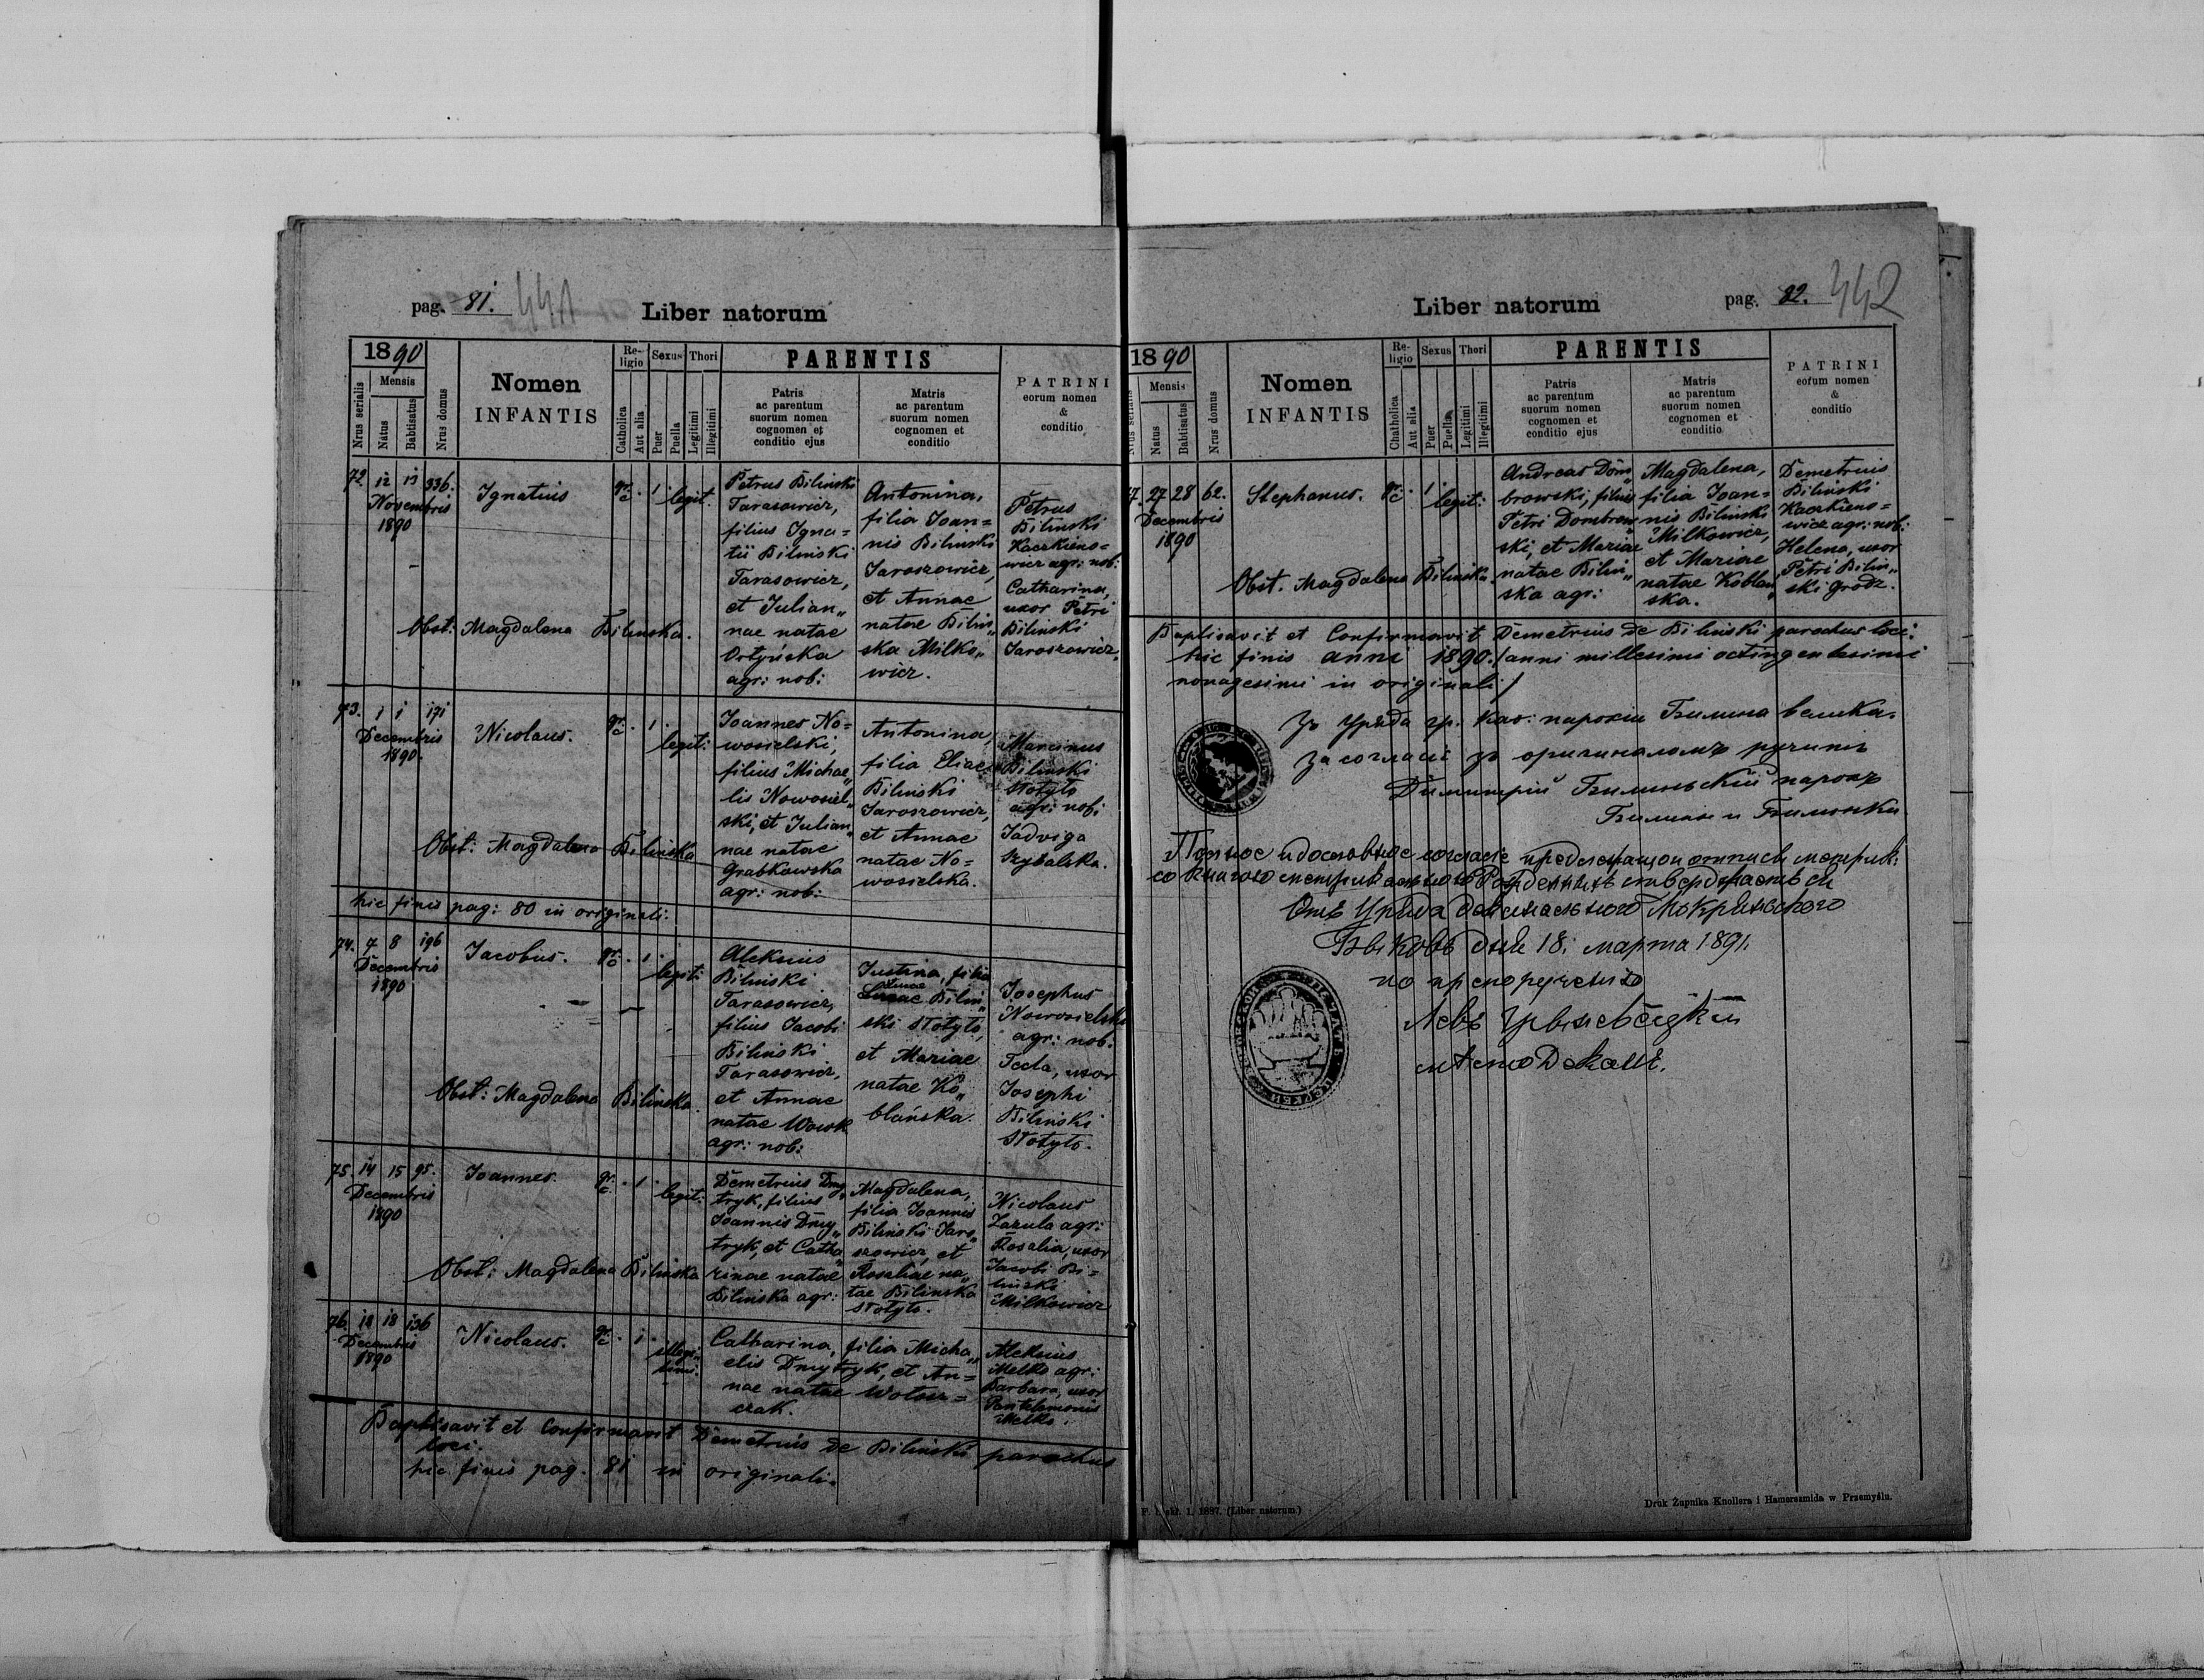 pag. 81. 441
Liber natorum
1890
Nrus serialis
Mensis
Natus
Babtisatus
Nrus domus
Nomen
INFANTIS
Re-
ligio
Catholica
Aut alia
Sexus
Puer
Puella
Thori
Legitimi
Illegitimi
PARENTIS
Patris
ac parentum
suorum nomen
cognomen et
conditio ejus
Matris
ac parentum
suorum nomen
cognomen et
conditio
PATRINI
eorum nomen
&
conditio
72. 12 13 336.
Novembris
1890
Ignatius
gr. c. 1 legit.
Petrus Bilinski
Tarasowicz,
filius Igna-
tii Bilinski
Tarasowicz,
et Julian„
nae natae
Ortyńska
agr: nob:
Antonina,
filia Joan=
nis Bilinski
Jaroszowicz,
et Annae
natae Bilin„
ska Milko„
wicz.
Petrus
Bilinski
Kaczkieno=
wicz agr: nob:
Catharina,
uxor Petri
Bilinski
Jaroszowicz.
Obst: Magdalena Bilinska.
73. 1 1 171
Decembris
1890.
Nicolaus.
gr. c. 1 legit:
Joannes No=
wosielski,
filius Michae„
lis Nowosiel„
ski, et Julian„
nae natae
Grabkowska
agr: nob:
Antonina,
filia Eliae
Bilinski
Jaroszowicz,
et Annae
natae No=
wosielska.
Marcinus
Bilinski
Stotyto
agr: nob:
Jadviga
Szybalska.
Obst: Magdalena Bilinska
hic finis pag: 80 in originali.
74. 7 8 196
Decembris
1890
Jacobus.
gr. c. 1 legit:
Aleksius
Bilinski
Tarasowicz,
filius Jacobi
Bilinski
Tarasowicz,
et Annae
natae Wowk
agr: nob:
Justina, filia
Lucae Bilin„
ski Stotyto,
et Mariae
natae Ko„
blańska.
Josephus
Nowosielski
agr: nob:
Tecla, uxor
Josephi
Bilinski
Stotyto.
Obst: Magdalena Bilinska.
75. 14 15 95.
Decembris
1890
Joannes.
gr. c. 1 legit:
Demetrius Dmy„
tryk, filius
Joannis Dmy„
tryk, et Catha„
rinae natae
Bilinska agr:
Magdalena,
filia Joannis
Bilinski Jaro„
szowicz, et
Rosaliae na„
tae Bilinska
Stotyto.
Nicolaus
Zazula agr:
Rosalia, uxor
Jacobi Bi=
linski
Milkowicz
Obst: Magdalena Bilinska
76. 18 18 136
Decembris
1890
Nicolaus.
gr. c. 1 illegi:
timi.
Catharina, filia Micha„
elis Dmytryk, et An=
nae natae Wołosz=
czak.
Aleksius
Melko agr:
Barbara, uxor
Pantelemonis
Melko.
Baptisavit et Confirmavit Demetrius de Bilinski parochus
loci.
hic finis pag. 81 in originali.
Liber natorum
pag. 82. 442
1890
Nrus serialis
Mensis
Natus
Babtisatus
Nrus domus
Nomen
INFANTIS
Re-
ligio
Chatholica
Aut alia
Sexus
Puer
Puella
Thori
Legitimi
Illegitimi
PARENTIS
Patris
ac parentum
suorum nomen
cognomen et
conditio ejus
Matris
ac parentum
suorum nomen
cognomen et
conditio
PATRINI
eorum nomen
&
conditio
7. 27 28 62.
Decembris
1890
Stephanus.
gr. c. 1 legit:
Andreas Dom„
browski, filius
Petri Dombrow„
ski, et Mariae
natae Bilin„
ska agr:
Magdalena,
filia Joan=
nis Bilinski
Milkowicz,
et Mariae
natae Koblan„
ska.
Demetrius
Bilinski
Kaczkieno=
wicz agr: nob:
Helena, uxor
Petri Bilin„
ski Grodz.
Obst. Magdalena Bilinska.
Baptisavit et Confirmavit Demetrius de Bilinski parochus loci.
hic finis anni 1890. /anni millesimi octingentesimi
nonagesimi in originali/
Зъ уряда гр. кат: парохіи Билина велика.
За согласіе зъ оригиналомъ ручитъ
Димитрій Билиньскій парохъ
Билины и Билинки
Полное и дословное согласіе
Отъ Уряда Деканального Мокрянского
Быковъ дня 18. марта 1891.
по препорученію
Левъ
Druk Żupnika Knollera i Hamerszmida w Przemyślu.